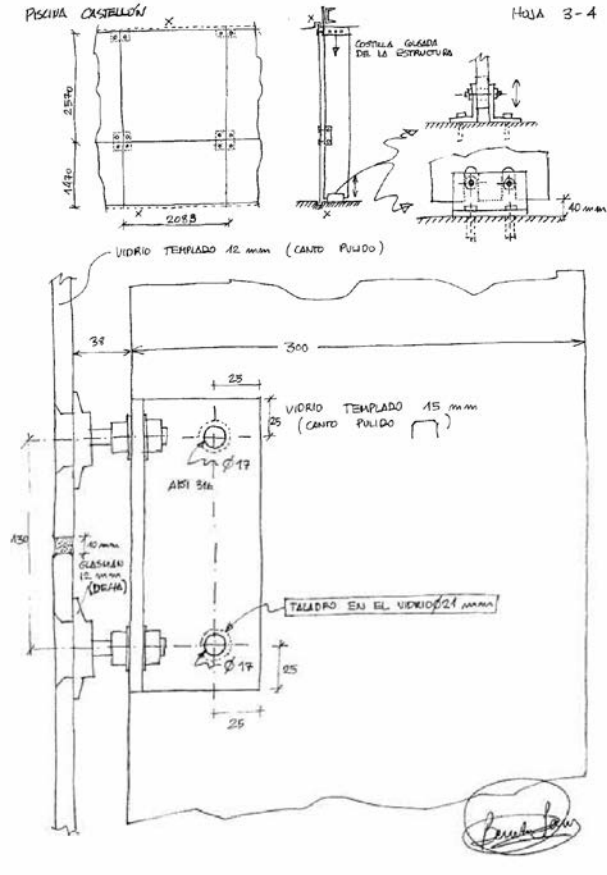 PISCINA CASTELLÓN
HOJA 3-4
X
X
COSTILLA COLGADA
DE LA ESTRUCTURA
2570
1470
X
X
2083
40 mm
VIDRIO TEMPLADO 12 mm (CANTO PULIDO)
38
300
25
25
VIDRIO TEMPLADO 15 mm
(CANTO PULIDO )
Ø17
AISI 316
130
10 mm
12 mm
TALADRO EN EL VIDRIO Ø21 mm
Ø17
25
25